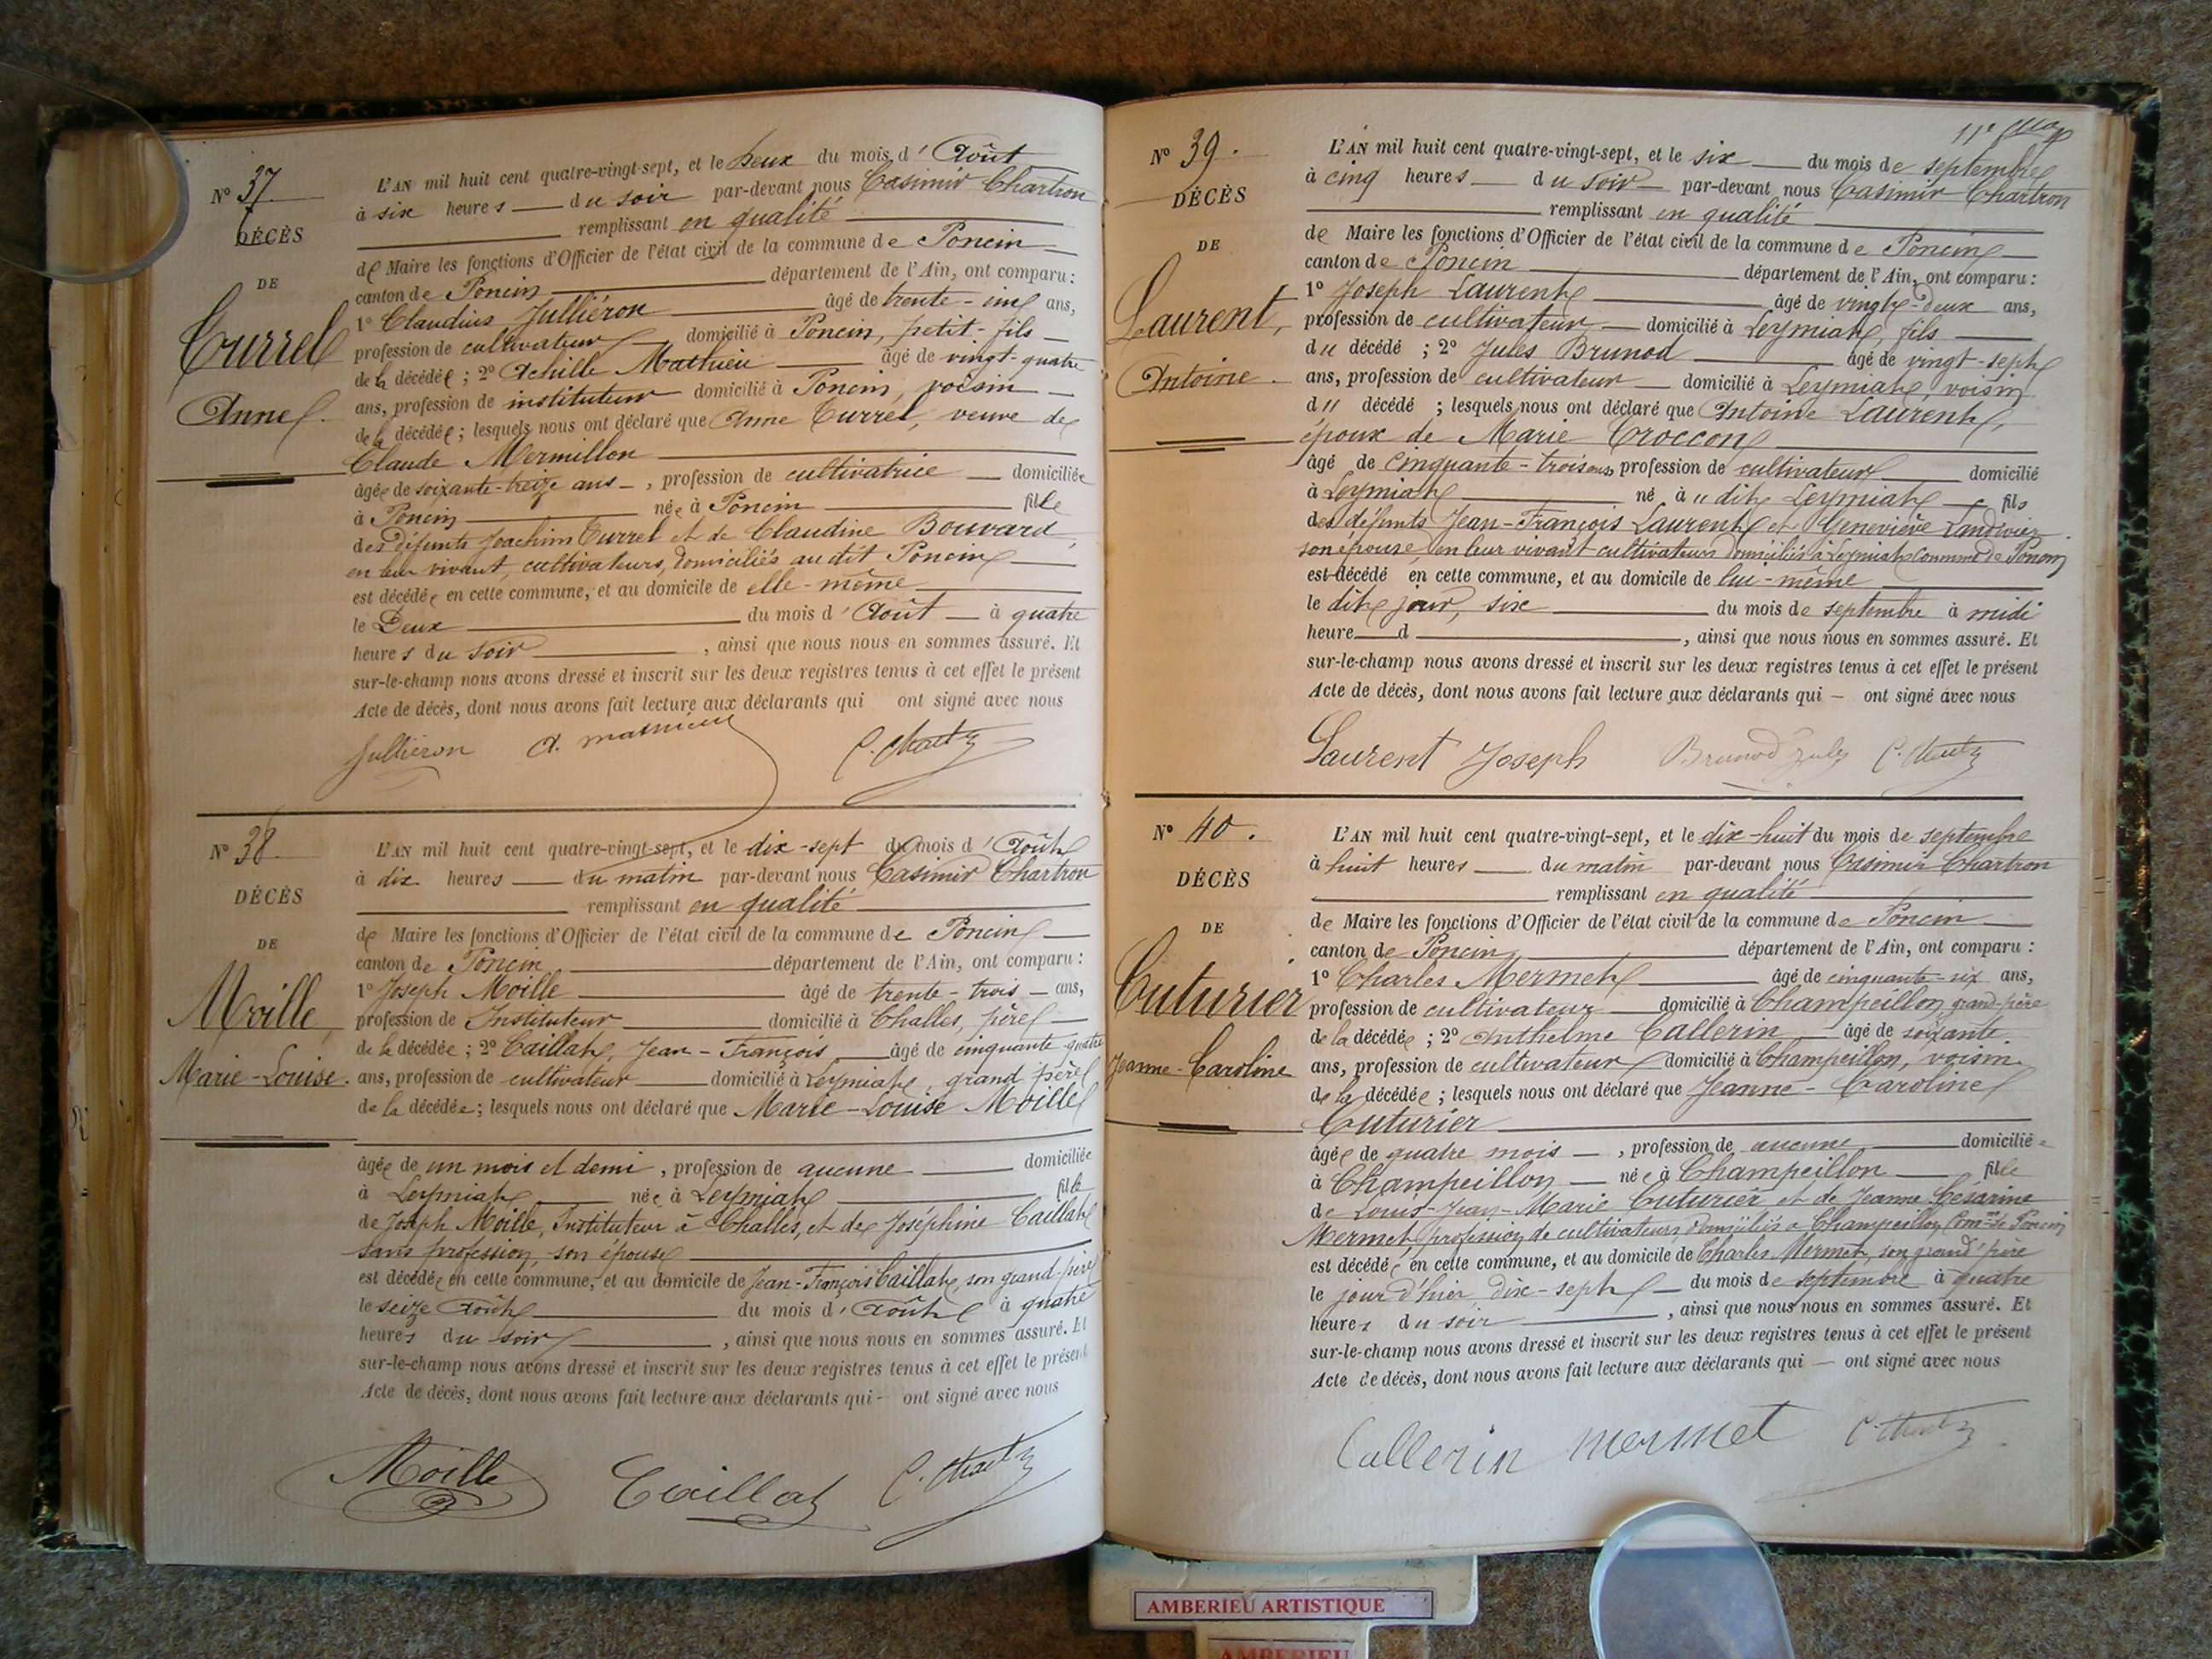 N° 37
DÉCÈS
DE
Turrel
Anne.
L'AN mil huit cent quatre-vingt-sept, et le Deux du mois d'Août
à six heures du soir par-devant nous Casimir Chartron
remplissant en qualité
de Maire les fonctions d'Officier de l'état civil de la commune de Poncin
canton de Poncin département de l'Ain, ont comparu :
1° Claudius Julliéron âgé de trente-cinq ans,
profession de cultivateur domicilié à Poncin, petit-fils
de la décédée ; 2° Achille Mathieu âgé de vingt-quatre
ans, profession de instituteur domicilié à Poncin, voisin
de la décédée ; lesquels nous ont déclaré que Anne Turrel, veuve de
Claude Mermillon
âgée de soixante-treize ans, profession de cultivatrice domiciliée
à Poncin née à Poncin fille
des défunts Joachim Turrel et de Claudine Bouvard,
en leur vivant, cultivateurs, domiciliés au dit Poncin
est décédée en cette commune, et au domicile de elle-même
le Deux du mois d'Août à quatre
heures du soir, ainsi que nous nous en sommes assuré. Et
sur-le-champ nous avons dressé et inscrit sur les deux registres tenus à cet effet le présent
Acte de décès, dont nous avons fait lecture aux déclarants qui ont signé avec nous
Julliéron A. Mathieu
N° 38
DÉCÈS
DE
Moille,
Marie-Louise.
L'AN mil huit cent quatre-vingt-sept, et le dix-sept du mois d'Août
à dix heures du matin par-devant nous Casimir Chartron
remplissant en qualité
de Maire les fonctions d'Officier de l'état civil de la commune de Poncin
canton de Poncin département de l'Ain, ont comparu :
1° Joseph Moille âgé de trente-trois ans,
profession de Instituteur domicilié à Challes, père
de la décédée ; 2° Caillat, Jean-François âgé de cinquante-quatre
ans, profession de cultivateur domicilié à Leymiat, grand père
de la décédée ; lesquels nous ont déclaré que Marie-Louise Moille
âgée de un mois et demi, profession de aucune domiciliée
à Leymiat née à Leymiat fille
de Joseph Moille, Instituteur à Challes, et de Joséphine Caillat
sans profession, son épouse
est décédée en cette commune, et au domicile de Jean-François Caillat, son grand-père
le seize Août du mois d'Août à quatre
heures du soir, ainsi que nous nous en sommes assuré. Et
sur-le-champ nous avons dressé et inscrit sur les deux registres tenus à cet effet le présent
Acte de décès, dont nous avons fait lecture aux déclarants qui - ont signé avec nous
Moille Caillat
11e
N° 39.
DÉCÈS
DE
Laurent,
Antoine.
L'AN mil huit cent quatre-vingt-sept, et le six du mois de septembre
à cinq heures du soir par-devant nous Casimir Chartron
remplissant en qualité
de Maire les fonctions d'Officier de l'état civil de la commune de Poncin
canton de Poncin département de l'Ain, ont comparu :
1° Joseph Laurent âgé de vingt-deux ans,
profession de cultivateur domicilié à Leymiat, fils
du décédé ; 2° Jules Brunod âgé de vingt-sept
ans, profession de cultivateur domicilié à Leymiat, voisin
du décédé ; lesquels nous ont déclaré que Antoine Laurent,
époux de Marie Croccon
âgé de cinquante-trois ans, profession de cultivateur domicilié
à Leymiat né à u dit Leymiat fils
des défunts Jean-François Laurent et Geneviève
son épouse, en leur vivant cultivateurs domiciliés à Leymiat commune de Poncin
est décédé en cette commune, et au domicile de lui-même
le dit jour, six du mois de septembre à midi
heure d , ainsi que nous nous en sommes assuré. Et
sur-le-champ nous avons dressé et inscrit sur les deux registres tenus à cet effet le présent
Acte de décès, dont nous avons fait lecture aux déclarants qui — ont signé avec nous
Laurent Joseph Brunod Jules
N° 40.
DÉCÈS
DE
Cuturier
Jeanne-Caroline
L'AN mil huit cent quatre-vingt-sept, et le dix-huit du mois de septembre
à huit heures du matin par-devant nous Casimir Chartron
remplissant en qualité
de Maire les fonctions d'Officier de l'état civil de la commune de Poncin
canton de Poncin département de l'Ain, ont comparu :
1° Charles Mermet âgé de cinquante-six ans,
profession de cultivateur domicilié à Champeillon, grand-père
de la décédée ; 2° Anthelme Callerin âgé de soixante
ans, profession de cultivateur domicilié à Champeillon, voisin
de la décédée ; lesquels nous ont déclaré que Jeanne-Caroline
Cuturier
âgée de quatre mois, profession de aucune domiciliée
à Champeillon née à Champeillon fille
de Louis-Jean-Marie Cuturier et de Jeanne Césarine
Mermet, profession de cultivateurs, domiciliés à Champeillon, Comne de Poncin
est décédée en cette commune, et au domicile de Charles Mermet, son grand'père
le jour d'hier dix-sept du mois de septembre à quatre
heures du soir, ainsi que nous nous en sommes assuré. Et
sur-le-champ nous avons dressé et inscrit sur les deux registres tenus à cet effet le présent
Acte de décès, dont nous avons fait lecture aux déclarants qui — ont signé avec nous
Callerin Mermet
AMBERIEU ARTISTIQUE
AMBERIEU